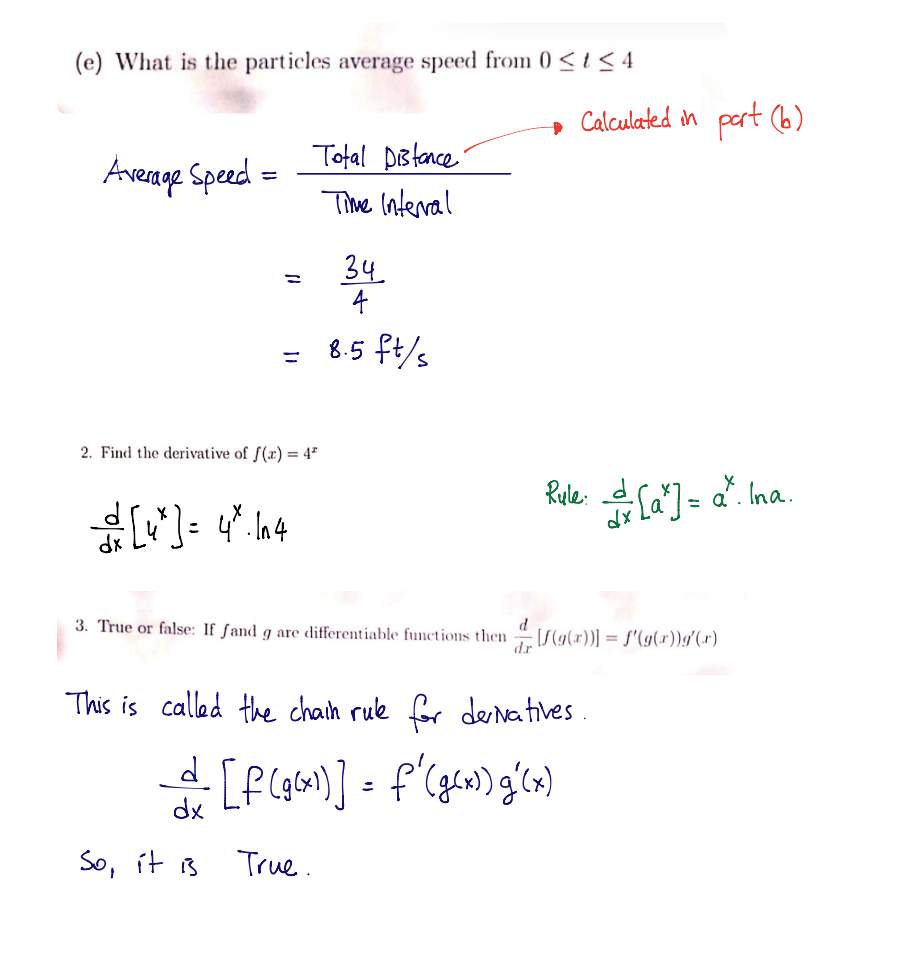 (e) What is the particles average speed from 0 ≤ t ≤ 4
Calculated in part (b)
Average Speed = Total Distance / Time Interval
= 34 / 4
= 8.5 ft/s
2. Find the derivative of f(x) = 4^x
Rule: d/dx [a^x] = a^x . ln a.
d/dx [4^x] = 4^x . ln 4
3. True or false: If f and g are differentiable functions then d/dx [f(g(x))] = f'(g(x))g'(x)
This is called the chain rule for derivatives.
d/dx [f(g(x))] = f'(g(x)) g'(x)
So, it is True.